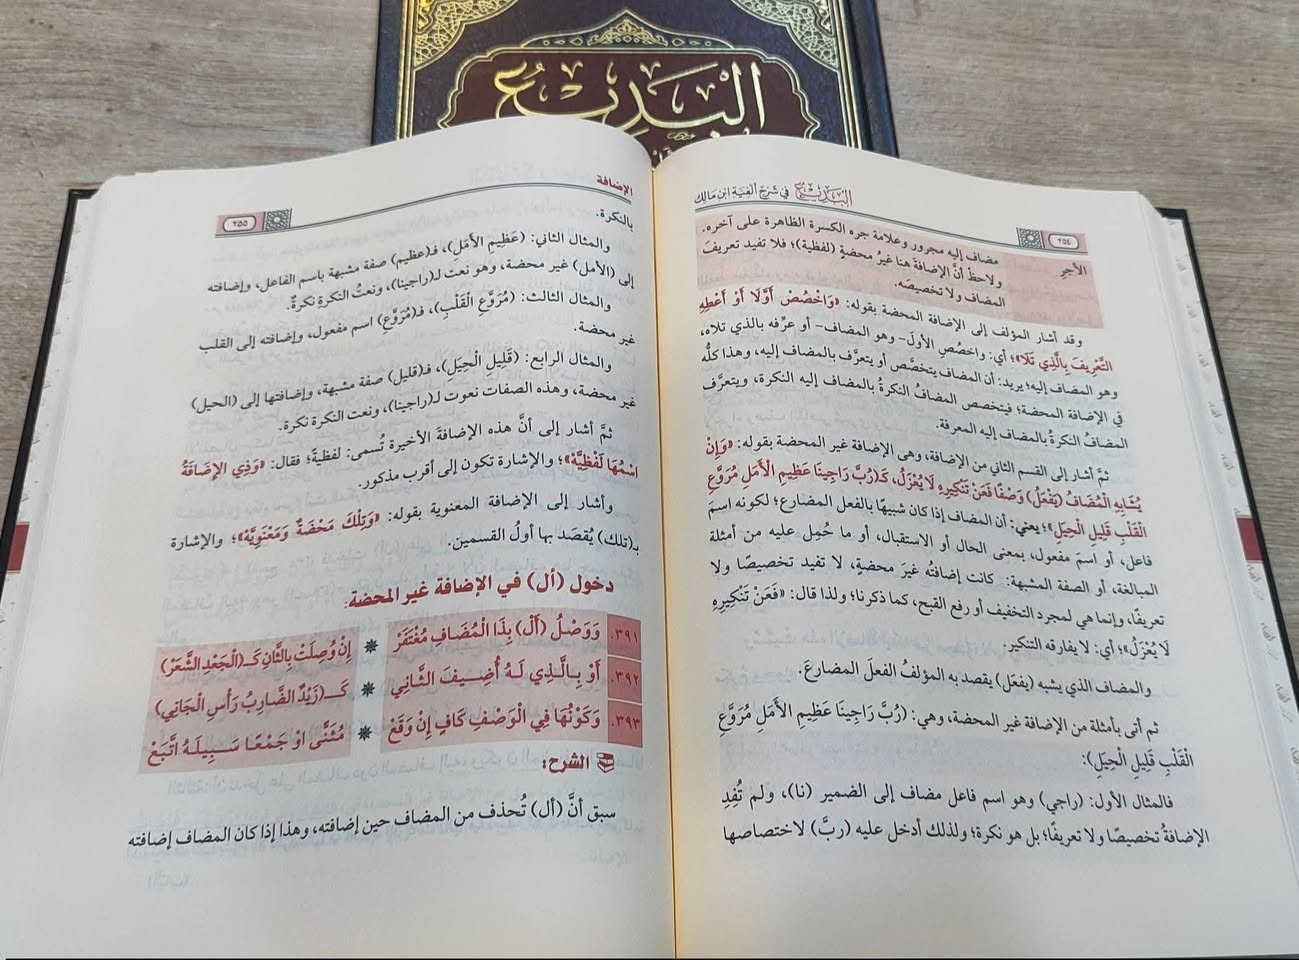 البَدِيعُ
البَدِيعُ في شَرْحِ أَلْفِيَّةِ ابْنِ مَالِك
٢٥٤
الأجرِ
مضاف إليه مجرور وعلامة جره الكسرة الظاهرة على آخره.
ولاحظْ أنَّ الإضافةَ هنا غيرُ محضةٍ (لفظية)؛ فلا تفيد تعريفَ
المضاف ولا تخصيصَه.
وقد أشار المؤلف إلى الإضافة المحضة بقوله: «وَاخْصُصْ أَوَّلَا أَوْ أَعْطِهِ
التَّعْرِيفَ بِالَّذِي تَلَا»؛ أي: واخصُصِ الأولَ- وهو المضاف- أو عرِّفه بالذي تلاه،
وهو المضاف إليه؛ يريد: أن المضاف يتخصَّص أو يتعرَّف بالمضاف إليه، وهذا كلُّه
في الإضافة المحضة؛ فيتخصص المضافُ النكرةُ بالمضاف إليه النكرة، ويتعرَّف
المضافُ النكرةُ بالمضاف إليه المعرفة.
ثمَّ أشار إلى القسم الثاني من الإضافة، وهي الإضافة غير المحضة بقوله: «وَإِنْ
يُشَابِهِ الْمُضَافُ (يَفْعَلُ) وَصْفًا فَعَنْ تَنْكِيرِهِ لَا يُعْزَلُ، كَـ(رُبَّ رَاجِينَا عَظِيمِ الْأَمَلِ مُرَوَّعِ
الْقَلْبِ قَلِيلِ الْحِيَلِ»؛ يعني: أن المضاف إذا كان شبيهًا بالفعل المضارع؛ لكونه اسمَ
فاعل، أو اسمَ مفعول، بمعنى الحال أو الاستقبال، أو ما حُمِل عليه من أمثلة
المبالغة، أو الصفة المشبهة: كانت إضافتُه غيرَ محضةٍ، لا تفيد تخصيصًا ولا
تعريفًا، وإنما هي لمجرد التخفيف أو رفع القبح، كما ذكرنا؛ ولذا قال: «فَعَنْ تَنْكِيرِهِ
لَا يُعْزَلُ»؛ أي: لا يفارقه التنكير.
والمضاف الذي يشبه (يفعَل) يقصد به المؤلفُ الفعلَ المضارعَ.
ثم أتى بأمثلة من الإضافة غير المحضة، وهي: (رُبَّ رَاجِينَا عَظِيمِ الْأَمَلِ مُرَوَّعِ
الْقَلْبِ قَلِيلِ الْحِيَلِ):
فالمثال الأول: (راجي) وهو اسم فاعل مضاف إلى الضمير (نا)، ولم تُفِدِ
الإضافةُ تخصيصًا ولا تعريفًا؛ بل هو نكرة؛ ولذلك أدخل عليه (ربَّ) لاختصاصها
الإضافة
٢٥٥
بالنكرة.
والمثال الثاني: (عَظِيمِ الْأَمَلِ)، فـ(عظيم) صفة مشبهة باسم الفاعل، وإضافته
إلى (الأمل) غير محضة، وهو نعت لـ(راجينا)، ونعتُ النكرةِ نكرةٌ.
والمثال الثالث: (مُرَوَّعِ الْقَلْبِ)، فـ(مُرَوَّعِ) اسم مفعول، وإضافته إلى القلب
غير محضة.
والمثال الرابع: (قَلِيلِ الْحِيَلِ)، فـ(قليل) صفة مشبهة، وإضافتها إلى (الحيل)
غير محضة، وهذه الصفات نعوت لـ(راجينا)، ونعت النكرة نكرة.
ثمَّ أشار إلى أنَّ هذه الإضافةَ الأخيرة تُسمى: لفظيةً؛ فقال: «وَذِي الْإِضَافَةُ
اسْمُهَا لَفْظِيَّهْ»؛ والإشارة تكون إلى أقرب مذكور.
وأشار إلى الإضافة المعنوية بقوله: «وَتِلْكَ مَحْضَةٌ وَمَعْنَوِيَّهْ»؛ والإشارة
بـ(تلك) يُقصَد بها أولُ القسمين.
دخول (أل) في الإضافة غير المحضة:
٣٩١. وَوَصْلُ (أَلْ) بِذَا الْمُضَافِ مُغْتَفَرْ ❋ إِنْ وُصِلَتْ بِالثَّانِ كَـ(الْجَعْدِ الشَّعَرْ)
٣٩٢. أَوْ بِـالَّـذِي لَـهُ أُضِـيـفَ الـثَّـانِي ❋ كَـ(زَيْدٌ الضَّارِبُ رَأْسِ الْجَانِي)
٣٩٣. وَكَوْنُهَا فِي الْوَصْفِ كَافٍ إِنْ وَقَعْ ❋ مُثَنًّى اوْ جَمْعًا سَـبِيلَـهُ اتَّبَعْ
الشرح:
سبق أنَّ (أل) تُحذف من المضاف حين إضافته، وهذا إذا كان المضاف إضافته